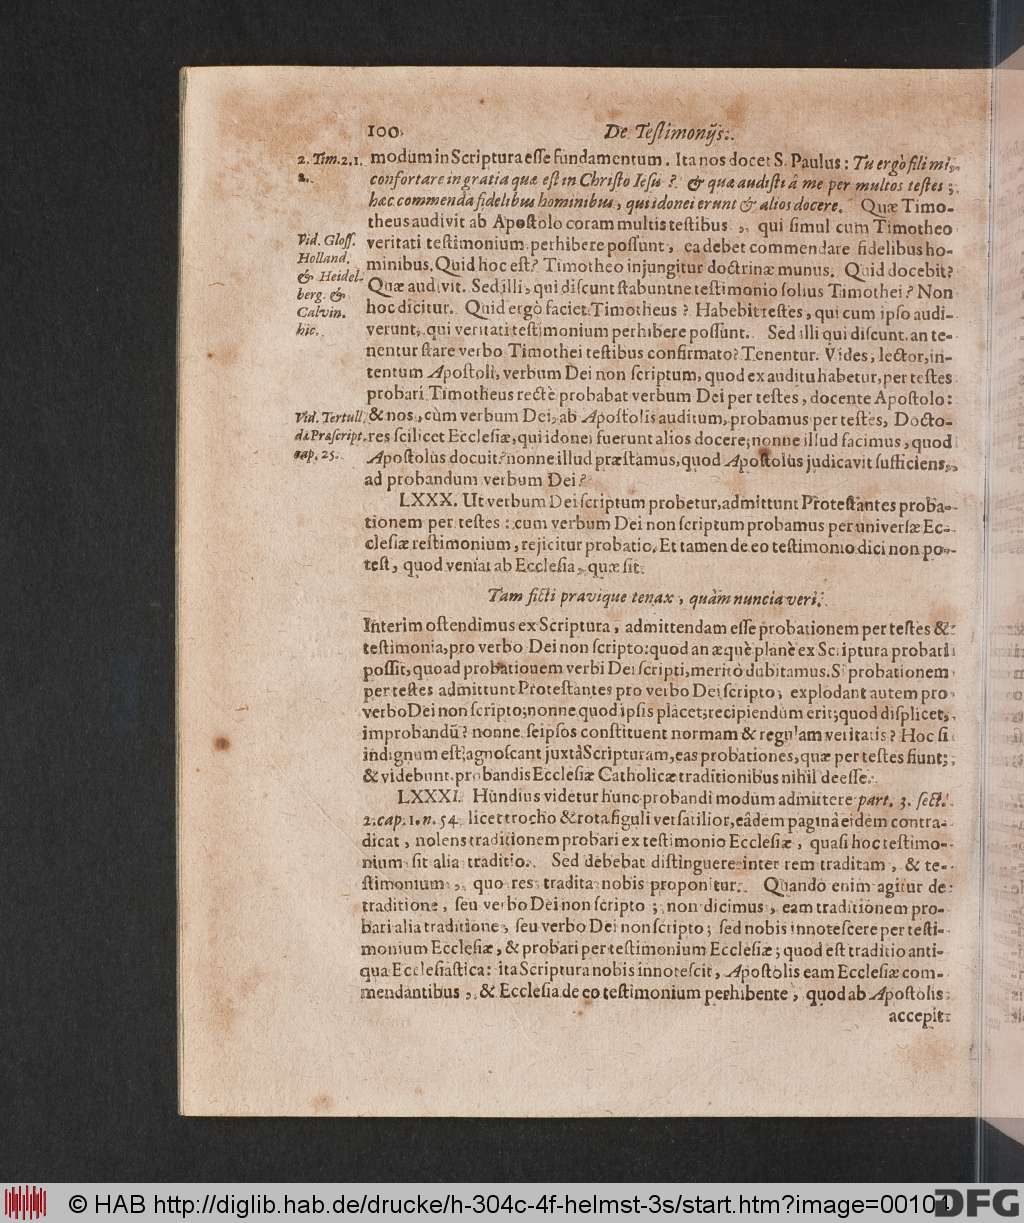 100.
De Testimonijs.
2. Tim. 2. 1.
2.
modum in Scriptura esse fundamentum. Ita nos docet S. Paulus: Tu ergò fili mi,
confortare in gratia quæ est in Christo Iesu? & quæ audisti à me per multos testes;
hæc commenda fidelibus hominibus, qui idonei erunt & alios docere. Quæ Timo-
theus audivit ab Apostolo coram multis testibus, qui simul cum Timotheo
veritati testimonium perhibere possunt, ea debet commendare fidelibus ho-
minibus. Quid hoc est? Timotheo injungitur doctrinæ munus. Quid docebit?
Quæ audivit. Sed illi, qui discunt stabuntne testimonio solius Timothei? Non
hoc dicitur. Quid ergò faciet Timotheus? Habebit testes, qui cum ipso audi-
verunt, qui veritati testimonium perhibere possunt. Sed illi qui discunt an te-
nentur stare verbo Timothei testibus confirmato? Tenentur. Vides, lector, in-
tentum Apostoli, verbum Dei non scriptum, quod ex auditu habetur, per testes
probari. Timotheus rectè probabat verbum Dei per testes, docente Apostolo:
& nos, cùm verbum Dei, ab Apostolis auditum, probamus per testes, Docto-
res scilicet Ecclesiæ, qui idonei fuerunt alios docere; nonne illud facimus, quod
Apostolus docuit? nonne illud præstamus, quod Apostolus judicavit sufficiens,
ad probandum verbum Dei?
Vid. Gloss.
Holland.
& Heidel-
berg. &
Calvin.
hic.
Vid. Tertull.
de Præscript.
cap. 25.
LXXX. Ut verbum Dei scriptum probetur, admittunt Protestantes proba-
tionem per testes: cum verbum Dei non scriptum probamus per universæ Ec-
clesiæ testimonium, rejicitur probatio. Et tamen de eo testimonio dici non po-
test, quod veniat ab Ecclesia, quæ sit
Tam ficti pravique tenax, quàm nuncia veri.
Interim ostendimus ex Scriptura, admittendam esse probationem per testes &
testimonia, pro verbo Dei non scripto: quod an æquè planè ex Scriptura probari
possit, quoad probationem verbi Dei scripti, meritò dubitamus. Si probationem
per testes admittunt Protestantes pro verbo Dei scripto, explodant autem pro
verbo Dei non scripto; nonne quod ipsis placet, recipiendum erit; quod displicet,
improbandũ? nonne seipsos constituent normam & regulam veritatis? Hoc si
indignum est, agnoscant juxtà Scripturam, eas probationes, quæ per testes fiunt;
& videbunt probandis Ecclesiæ Catholicæ traditionibus nihil deesse.
LXXXI. Hundius videtur hunc probandi modum admittere part. 3. sect.
2. cap. 1. n. 54. licet trocho & rota figuli versatilior, eâdem paginâ eidem contra-
dicat, nolens traditionem probari ex testimonio Ecclesiæ, quasi hoc testimo-
nium sit alia traditio. Sed debebat distinguere inter rem traditam, & te-
stimonium, quo res tradita nobis proponitur. Quando enim agitur de
traditione, seu verbo Dei non scripto; non dicimus, eam traditionem pro-
bari alia traditione, seu verbo Dei non scripto; sed nobis innotescere per testi-
monium Ecclesiæ, & probari per testimonium Ecclesiæ; quod est traditio anti-
qua Ecclesiastica: ita Scriptura nobis innotescit, Apostolis eam Ecclesiæ com-
mendantibus, & Ecclesia de eo testimonium perhibente, quod ab Apostolis
accepit:
© HAB http://diglib.hab.de/drucke/h-304c-4f-helmst-3s/start.htm?image=00104
DFG